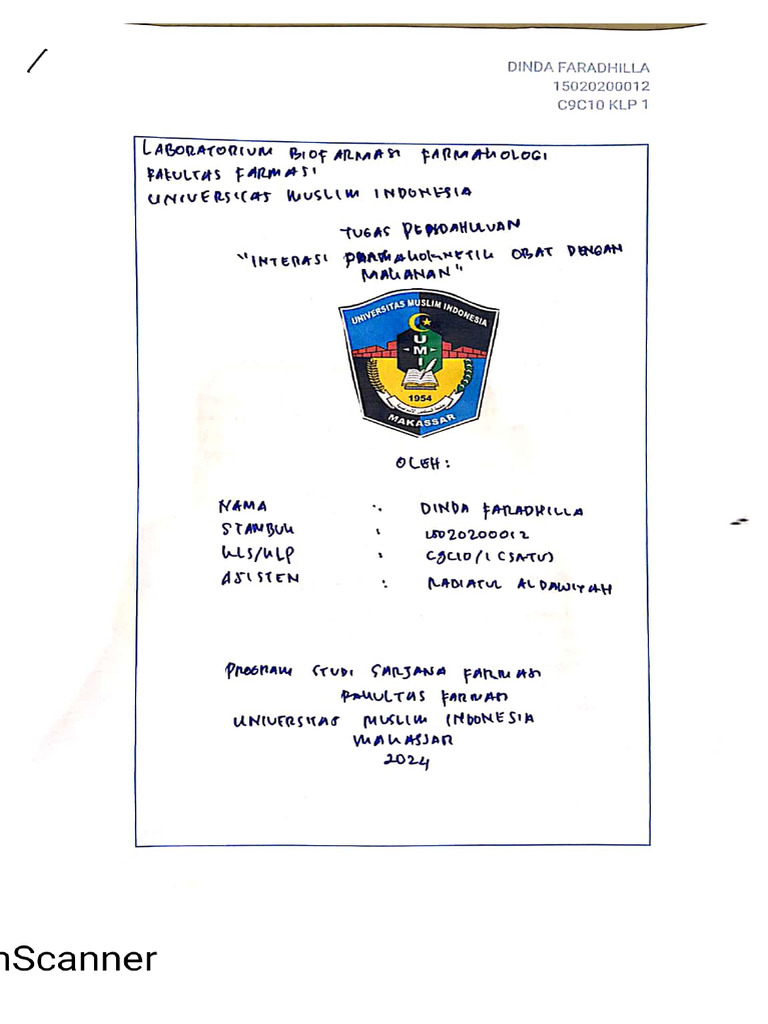 DINDA FARADHILLA
15020200012
C9C10 KLP 1
LABORATORIUM BIOFARMASI FARMAKOLOGI
FAKULTAS FARMASI
UNIVERSITAS MUSLIM INDONESIA
TUGAS PENDAHULUAN
"INTERASI FARMAKOKINETIK OBAT DENGAN
MAKANAN"
UNIVERSITAS MUSLIM INDONESIA
UMI
1954
MAKASSAR
OLEH:
NAMA : DINDA FARADHILLA
STAMBUK : 15020200012
KLS/KLP : C9C10/1 (SATU)
ASISTEN : RADIATUL ALDAWIYAH
PROGRAM STUDI SARJANA FARMASI
FAKULTAS FARMASI
UNIVERSITAS MUSLIM INDONESIA
MAKASSAR
2024
nScanner